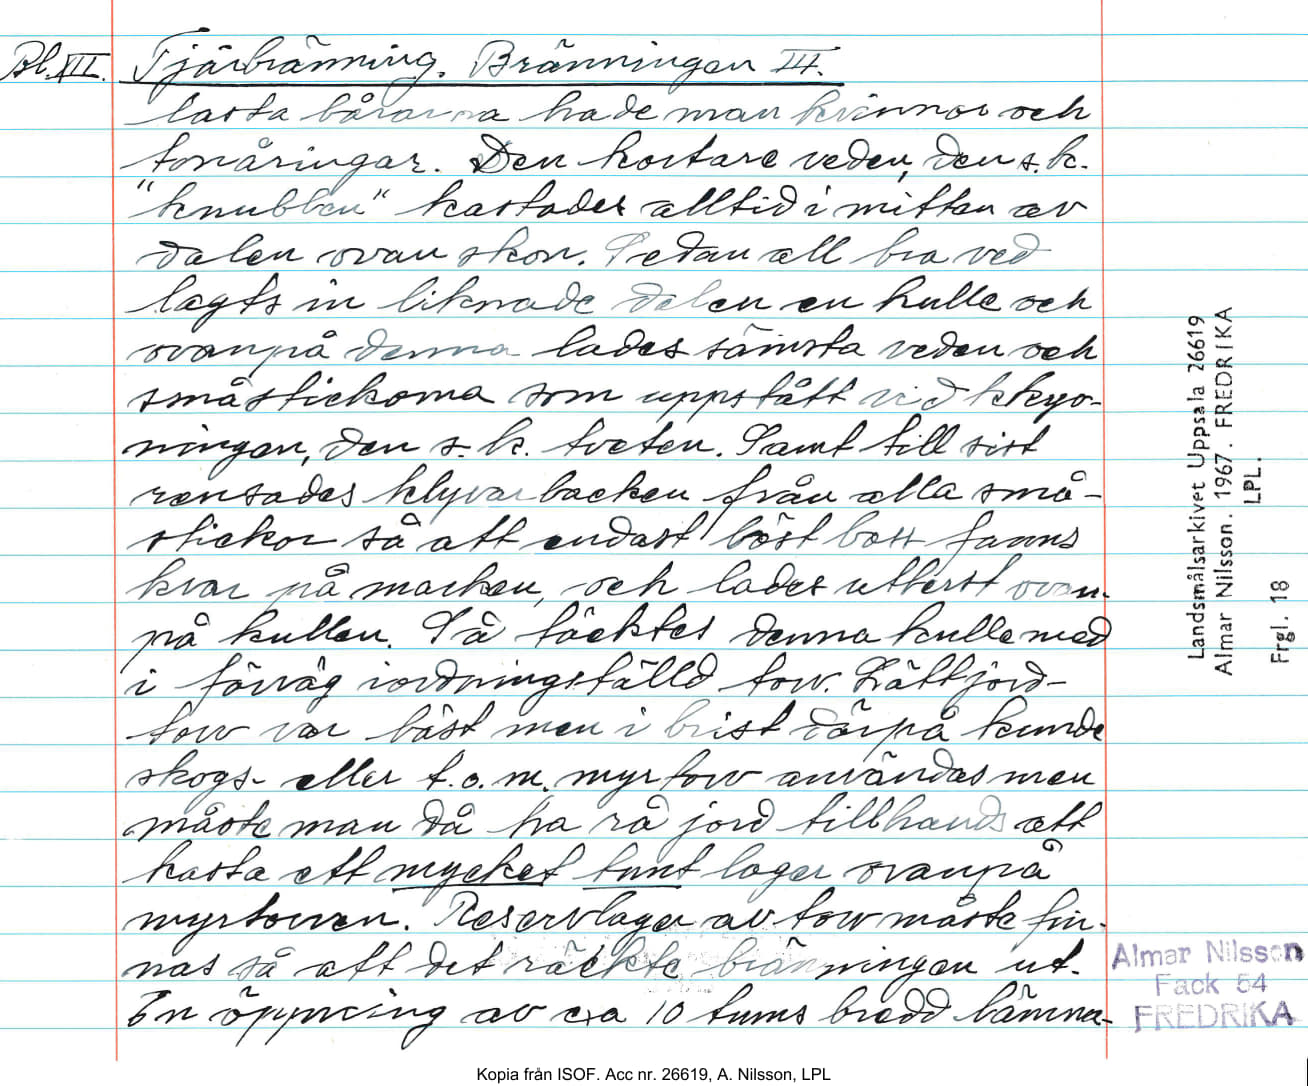 Bl. XII. Tjärbränning. Bränningen III.
lasta bårarna hade man kvinnor och
tonåringar. Den kortare veden, den s.k.
"knubben" kastades alltid i mitten av
dalen ovan skon. Sedan all bra ved
lagts in liknade dalen en kulle och
ovanpå denna lades sämsta veden och
småstickorna som uppstått vid kkyv-
ningen, den s.k. tveten. Samt till sist
rensades klyvarbacken från alla små-
stickor så att endast löst boss fanns
kvar på marken, och lades ytterst ovan-
på kullen. Så täcktes denna kulle med
i förväg iordningställd torv. Lätt jord-
torv var bäst men i brist därpå kunde
skogs- eller t.o.m. myrtorv användas men
måste man då ha rå jord tillhands att
kasta ett mycket tunt lager ovanpå
myrtorven. Reservlager av torv måste fin-
nas så att det räckte bränningen ut.
En öppning av c:a 10 tums bredd lämna-
Landsmålsarkivet Uppsala 26619
Almar Nilsson. 1967. FREDRIKA
LPL.
Frgl. 18
Almar Nilsson
Fack 54
FREDRIKA
Kopia från ISOF. Acc nr. 26619, A. Nilsson, LPL